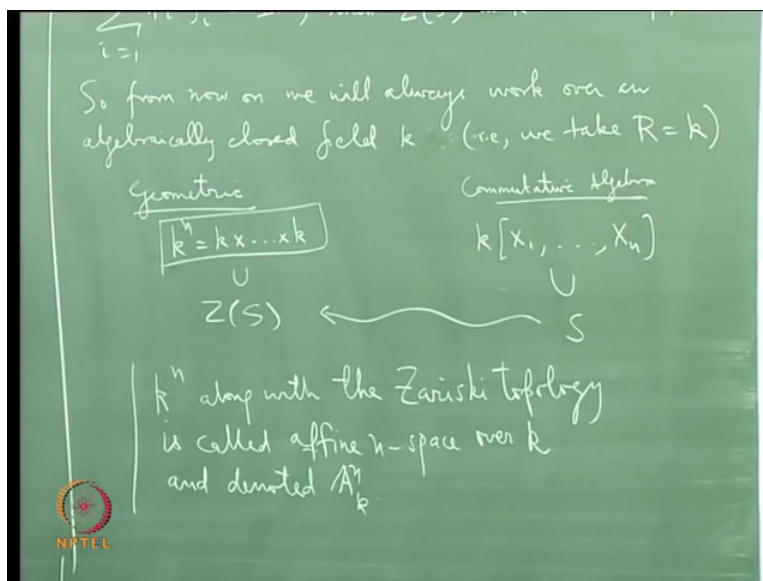 i=1
So from now on we will always work over an
algebraically closed field k (i.e, we take R = k)
Geometric Commutative Algebra
kⁿ = k x ... x k k[X₁, ..., Xₙ]
∪ ∪
Z(S) S
kⁿ along with the Zariski topology
is called affine n-space over k
and denoted 𝔸ⁿₖ
NPTEL